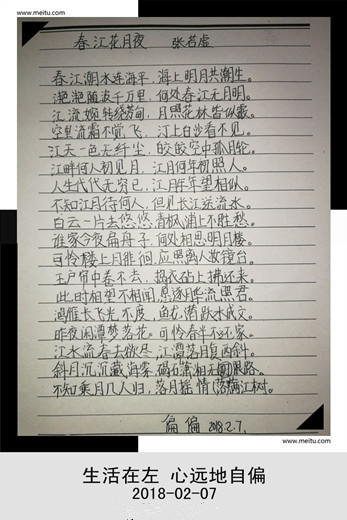 www.meitu.com
春江花月夜 张若虚
春江潮水连海平，海上明月共潮生。
滟滟随波千万里，何处春江无月明。
江流婉转绕芳甸，月照花林皆似霰。
空里流霜不觉飞，汀上白沙看不见。
江天一色无纤尘，皎皎空中孤月轮。
江畔何人初见月，江月何年初照人。
人生代代无穷已，江月年年望相似。
不知江月待何人，但见长江送流水。
白云一片去悠悠，青枫浦上不胜愁。
谁家今夜扁舟子，何处相思明月楼。
可怜楼上月徘徊，应照离人妆镜台。
玉户帘中卷不去，捣衣砧上拂还来。
此时相望不相闻，愿逐月华流照君。
鸿雁长飞光不度，鱼龙潜跃水成文。
昨夜闲潭梦落花，可怜春半不还家。
江水流春去欲尽，江潭落月复西斜。
斜月沉沉藏海雾，碣石潇湘无限路。
不知乘月几人归，落月摇情满江树。
偏偏 2018.2.7.
www.meitu.com
生活在左 心远地自偏
2018-02-07